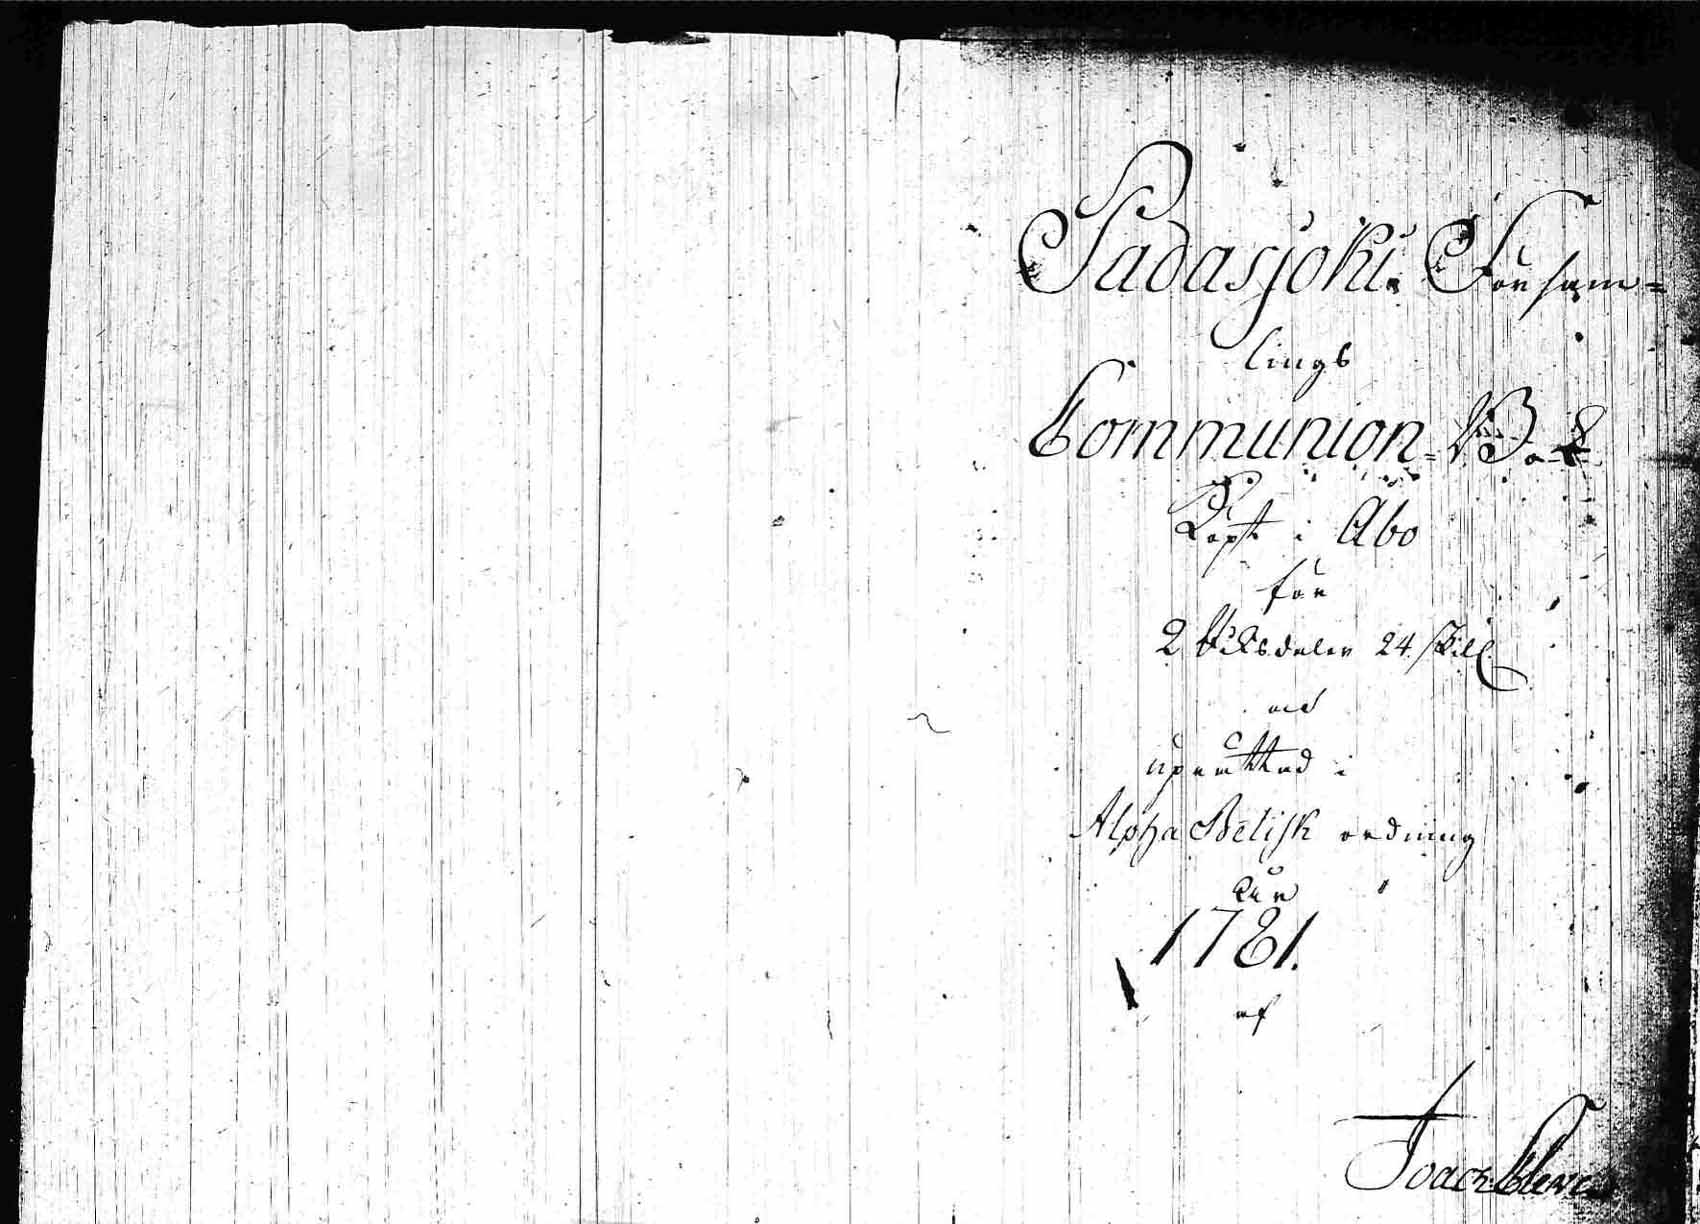 Padasjoki Försam=
lings
Communion-Bok
Köpt i Åbo
för
2 Riksdaler 24 skill.
och
uprättad i
AlphaBetisk ordning
åhr
1781.
af
Joach